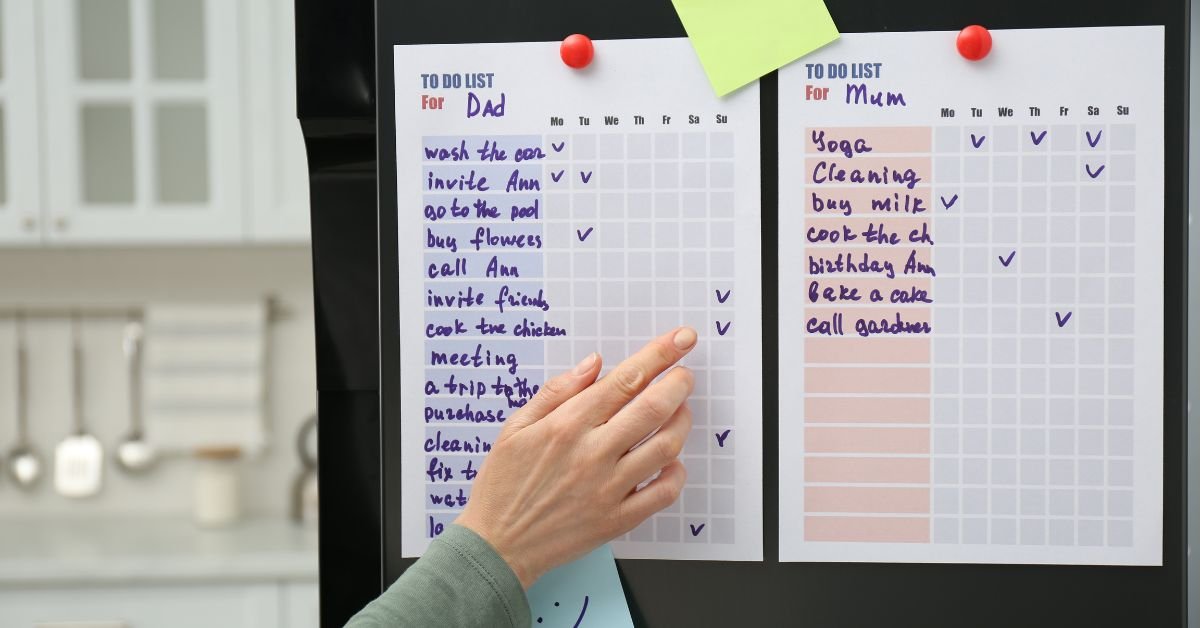 TO DO LIST
For Dad
Mo Tu We Th Fr Sa Su
wash the car
invite Ann
go to the pool
buy flowers
call Ann
invite friends
cook the chicken
meeting
a trip to the
purchase
fix
TO DO LIST
For Mum
Mo Tu We Th Fr Sa Su
Yoga
Cleaning
buy milk
cook the ch
birthday Ann
bake a cake
call gardner